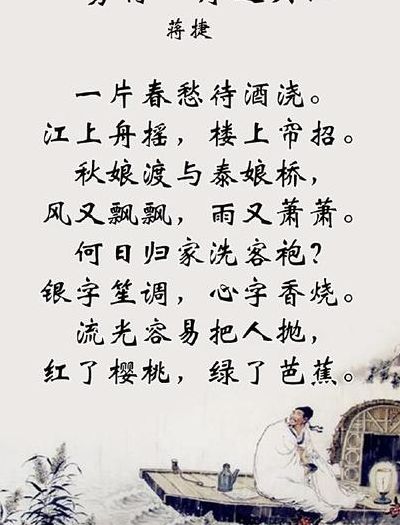 蒋捷
一片春愁待酒浇。
江上舟摇，楼上帘招。
秋娘渡与泰娘桥，
风又飘飘，雨又萧萧。
何日归家洗客袍？
银字笙调，心字香烧。
流光容易把人抛，
红了樱桃，绿了芭蕉。